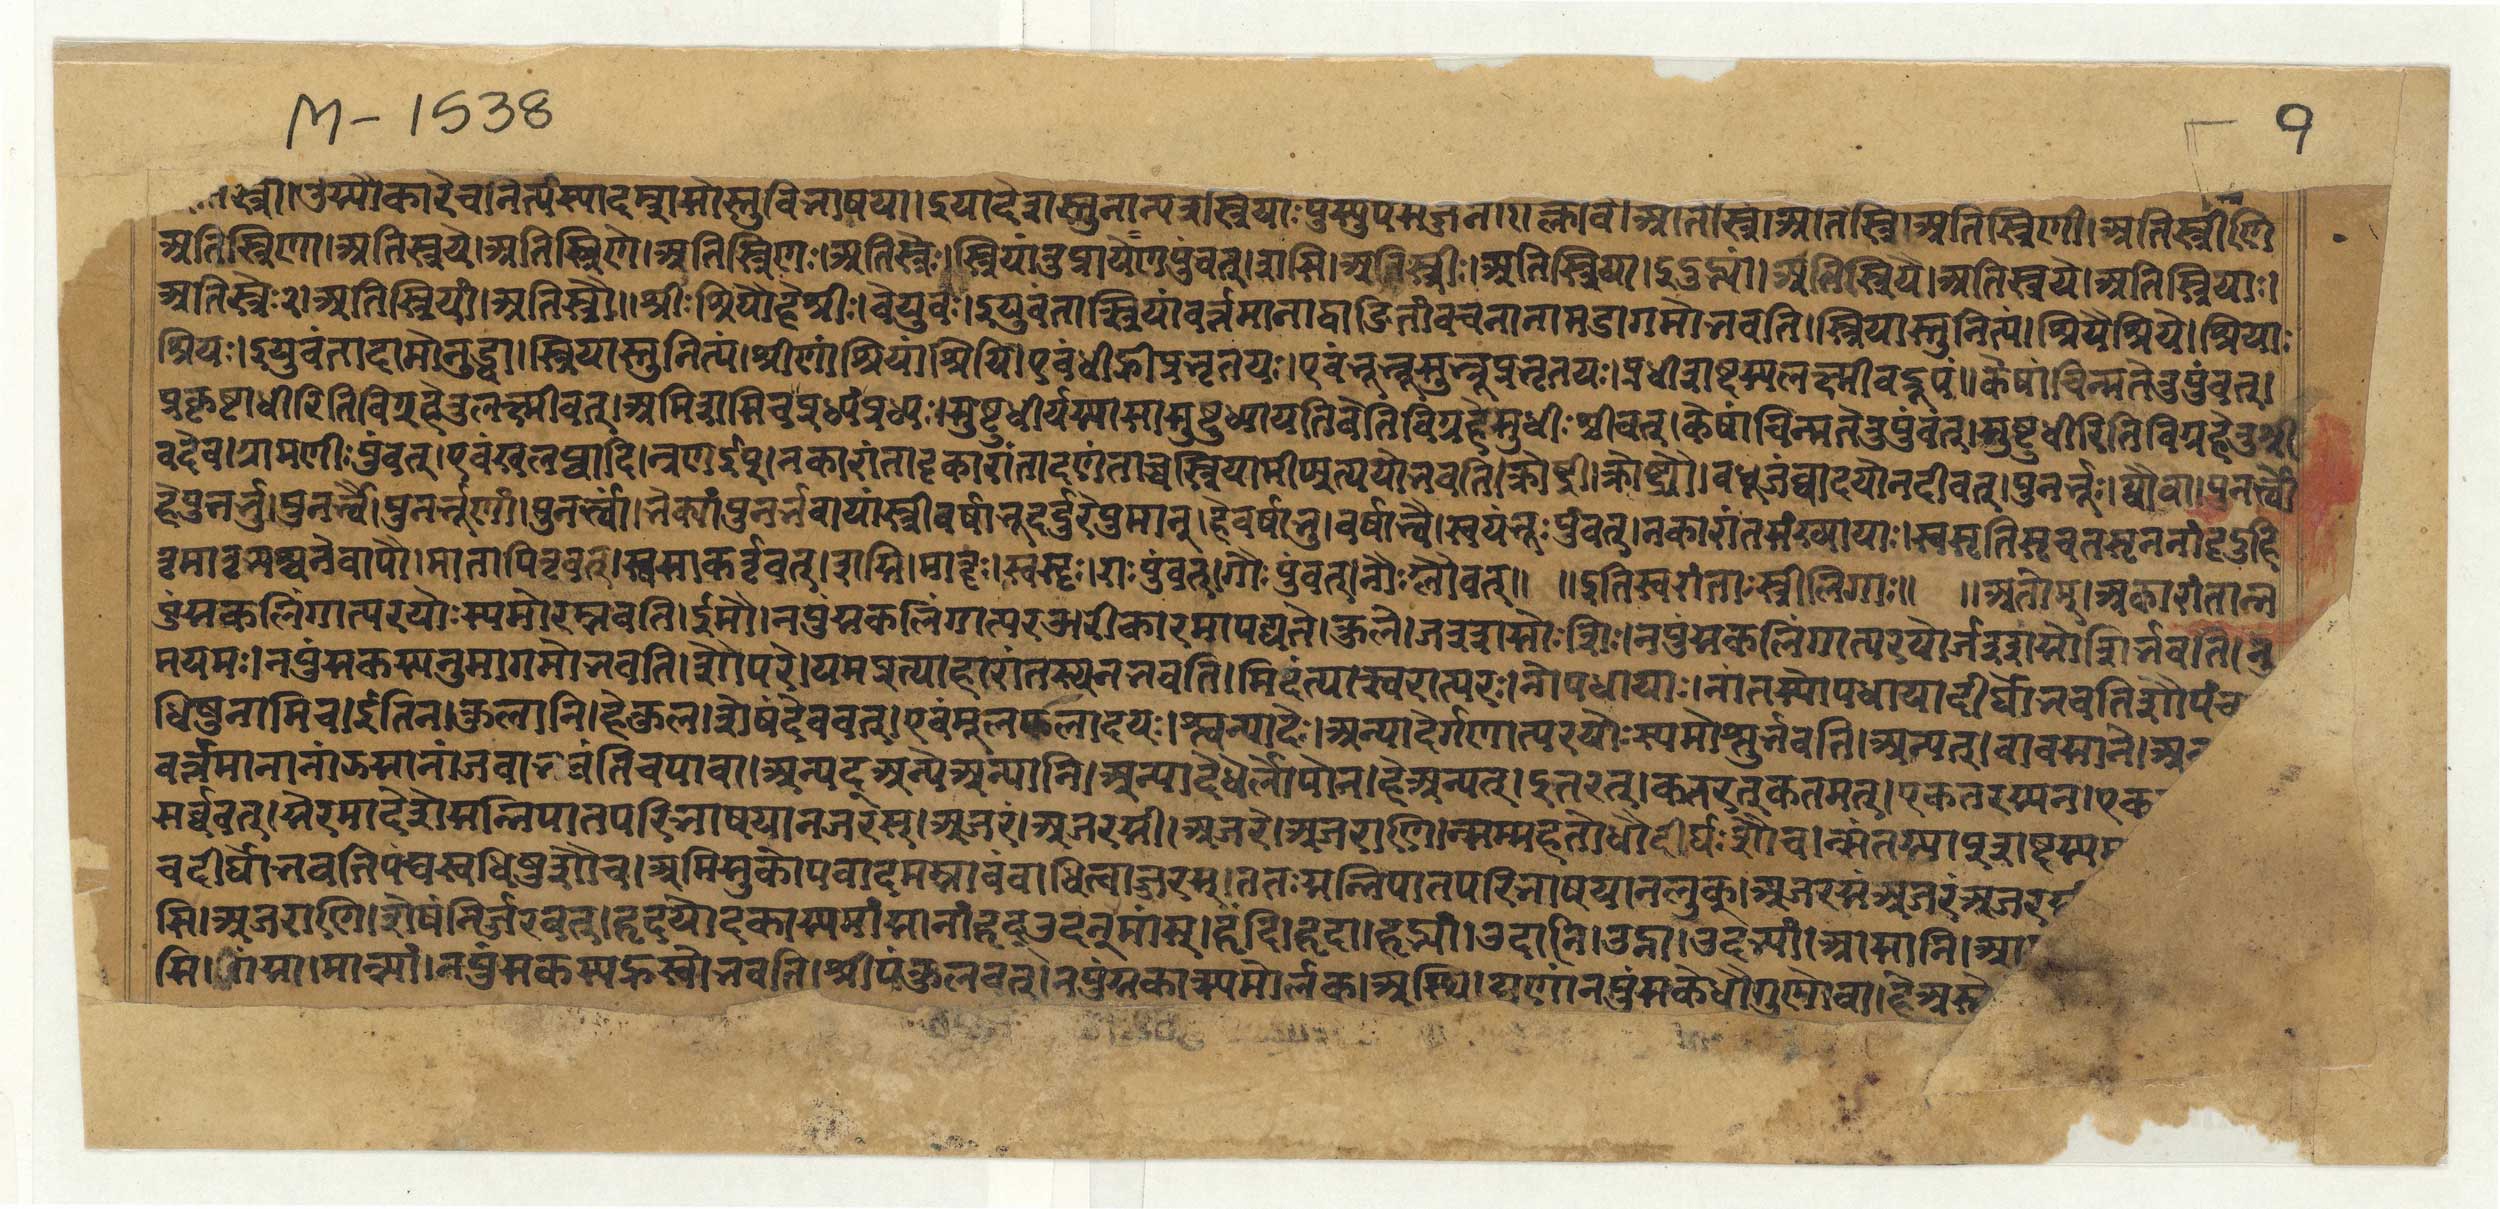 M-1538
१
स्त्री।उस्यौकारेचनित्यंस्यादम्शसोस्तुविभाषया।इयादेशस्तुनान्यत्रस्त्रियाःपुंस्युपसर्जनात्।क्लीबे।अतिस्त्रि।अतिस्त्रि।अतिस्त्रिणी।अतिस्त्रीणि
अतिस्त्रिणा।अतिस्त्रये।अतिस्त्रिणे।अतिस्त्रिणः।अतिस्त्रेः।स्त्रियांतुप्रायेणपुंवत्।शसि।अतिस्त्रीः।अतिस्त्रिया।ङिति।अतिस्त्रियै।अतिस्त्रये।अतिस्त्रियाः।
अतिस्त्रेः२।अतिस्त्रियां।अतिस्त्रौ॥श्रीःश्रियौहेश्रीः।वेयुवः।इयुवंतास्त्रियांवर्त्तमानाद्वाङितांवचनानामडागमोभवति।स्त्रियास्तुनित्यं।श्रियैश्रिये।श्रियाः
श्रियः।इयुवंतादामोनुड्वा।स्त्रियास्तुनित्यं।श्रीणांश्रियांश्रियि।एवंधीह्रीप्रभृतयः।एवंभूभ्रूसुभ्रूप्रभृतयः।प्रधीशब्दस्यलक्ष्मीवद्रूपं॥केषांचिन्मतेतुपुंवत्।
प्रकृष्टाधीरितिविग्रहेतुलक्ष्मीवत्।अमिशसिचप्रध्यंप्रध्यः।सुष्टुधीर्यस्यासासुष्टुध्यायतिवेतिविग्रहेसुधीःश्रीवत्।केषांचिन्मतेतुपुंवत्।सुष्टुधीरितिविग्रहेतुश्री
वदेव।ग्रामणीःपुंवत्।एवंखलप्वादि।व्रणईप्।नकारांतादृकारांतादणंताच्चस्त्रियामीप्प्रत्ययोभवति।क्रोष्ट्री।क्रोष्ट्र्यौ।वधूजंब्वादयोनदीवत्।पुनर्भूः।य्वौवा।पुनर्भ्वौ
हेपुनर्भु।पुनर्भ्वै।पुनर्भूणां।पुनर्भ्वां।भेक्यांपुनर्नवायांस्त्रीवर्षाभूर्दर्दुरेपुमान्।हेवर्षाभु।वर्षाभ्वै।स्वयंभूःपुंवत्।नकारांतसंख्यायाः।स्वसृतिसृचतसृननांदृदुहि
तृमातृभ्यश्चनेबापौ।मातापितृवत्।स्वसाकर्तृवत्।शसि।मातॄः।स्वसॄः।राःपुंवत्।गौःपुंवत्।नौःग्लौवत्॥ ॥इतिस्वरांताःस्त्रीलिंगाः॥ ॥अतोम्।अकारांतान्न
पुंसकलिंगात्परयोःस्यमोरम्भवति।ईमौ।नपुंसकलिंगात्परऔईकारमापद्यते।कुले।जश्शसोःशिः।नपुंसकलिंगात्परयोर्जश्शसोःशिर्भवति।नु
मयमः।नपुंसकस्यनुमागमोभवति।शौपरे।यमप्रत्याहारांतस्यनभवति।मिदंत्यात्स्वरात्परः।नोपधायाः।नांतस्योपधायादीर्घोभवतिशौपंच
धिषुनामिच।ईंतिन।कुलानि।हेकुल।शेषंदेववत्।एवंमूलफलादयः।श्त्वन्यादेः।अन्यादेर्गणात्परयोःस्यमोश्तुर्भवति।अन्यत्।वावसाने।
वर्त्तमानानांझसानांजबाभवंतिचपावा।अन्यद्अन्येअन्यानि।अन्यादेधेर्लोपोन।हेअन्यत्।इतरत्।कतरत्कतमत्।एकतरस्यन।
सर्ववत्।सेरमादेशेसन्निपातपरिभाषयानजरस्।अजरं।अजरसी।अजरे।अजराणि।न्सम्महतोधौदीर्घःशौच।न्संतस्याप्शब्दस्य
चदीर्घोभवतिपंचस्वधिषुशौच।अमिलुकोपवादमम्भावंबाधित्वाजरस्।ततःसन्निपातपरिभाषयानलुक्।अजरसंअजरंअजरसी
सि।अजराणि।शेषंनिर्जरवत्।हृदयोदकास्यमांसानांहृदउदन्मांस्।हृंदि।हृदा।हृद्भ्यां।उदानि।उद्ना।उदभ्यां।आसानि।
सि।मांसा।मान्भ्यां।नपुंसकस्यह्रस्वोभवति।श्रीपंकुलवत्।नपुंसकात्स्यमोर्लुक्।अस्थि।य्वृणांनपुंसकेधौगुणोवा।